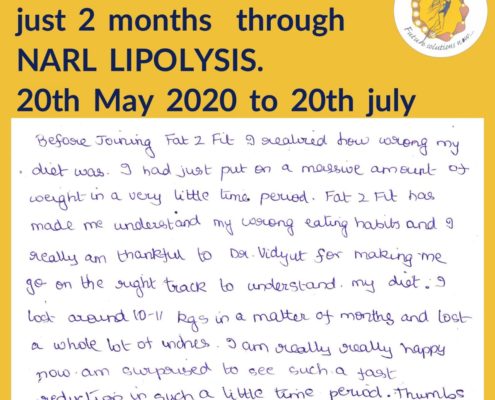 just 2 months through
NARL LIPOLYSIS.
20th May 2020 to 20th july
Future solutions now...
Before Joining Fat 2 Fit I realized how wrong my
diet was. I had just put on a massive amount of
weight in a very little time period. Fat 2 Fit has
made me understand my wrong eating habits and I
really am thankful to Dr. Vidyut for making me
go on the right track to understand my diet. I
lost around 10-11 kgs in a matter of months and lost
a whole lot of inches. I am really really happy
now am surprised to see such a fast
reduction in such a little time period. Thumbs